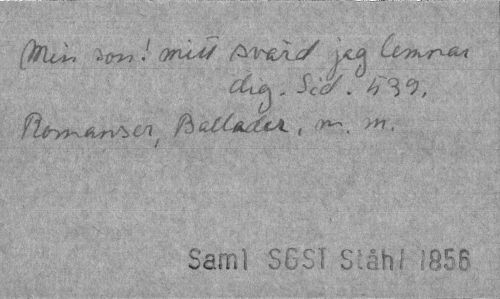 Min son! mitt svärd jag lemnar
dig. Sid. 539.
Romanser, Ballader, m. m.
Saml SGST Ståhl 1856